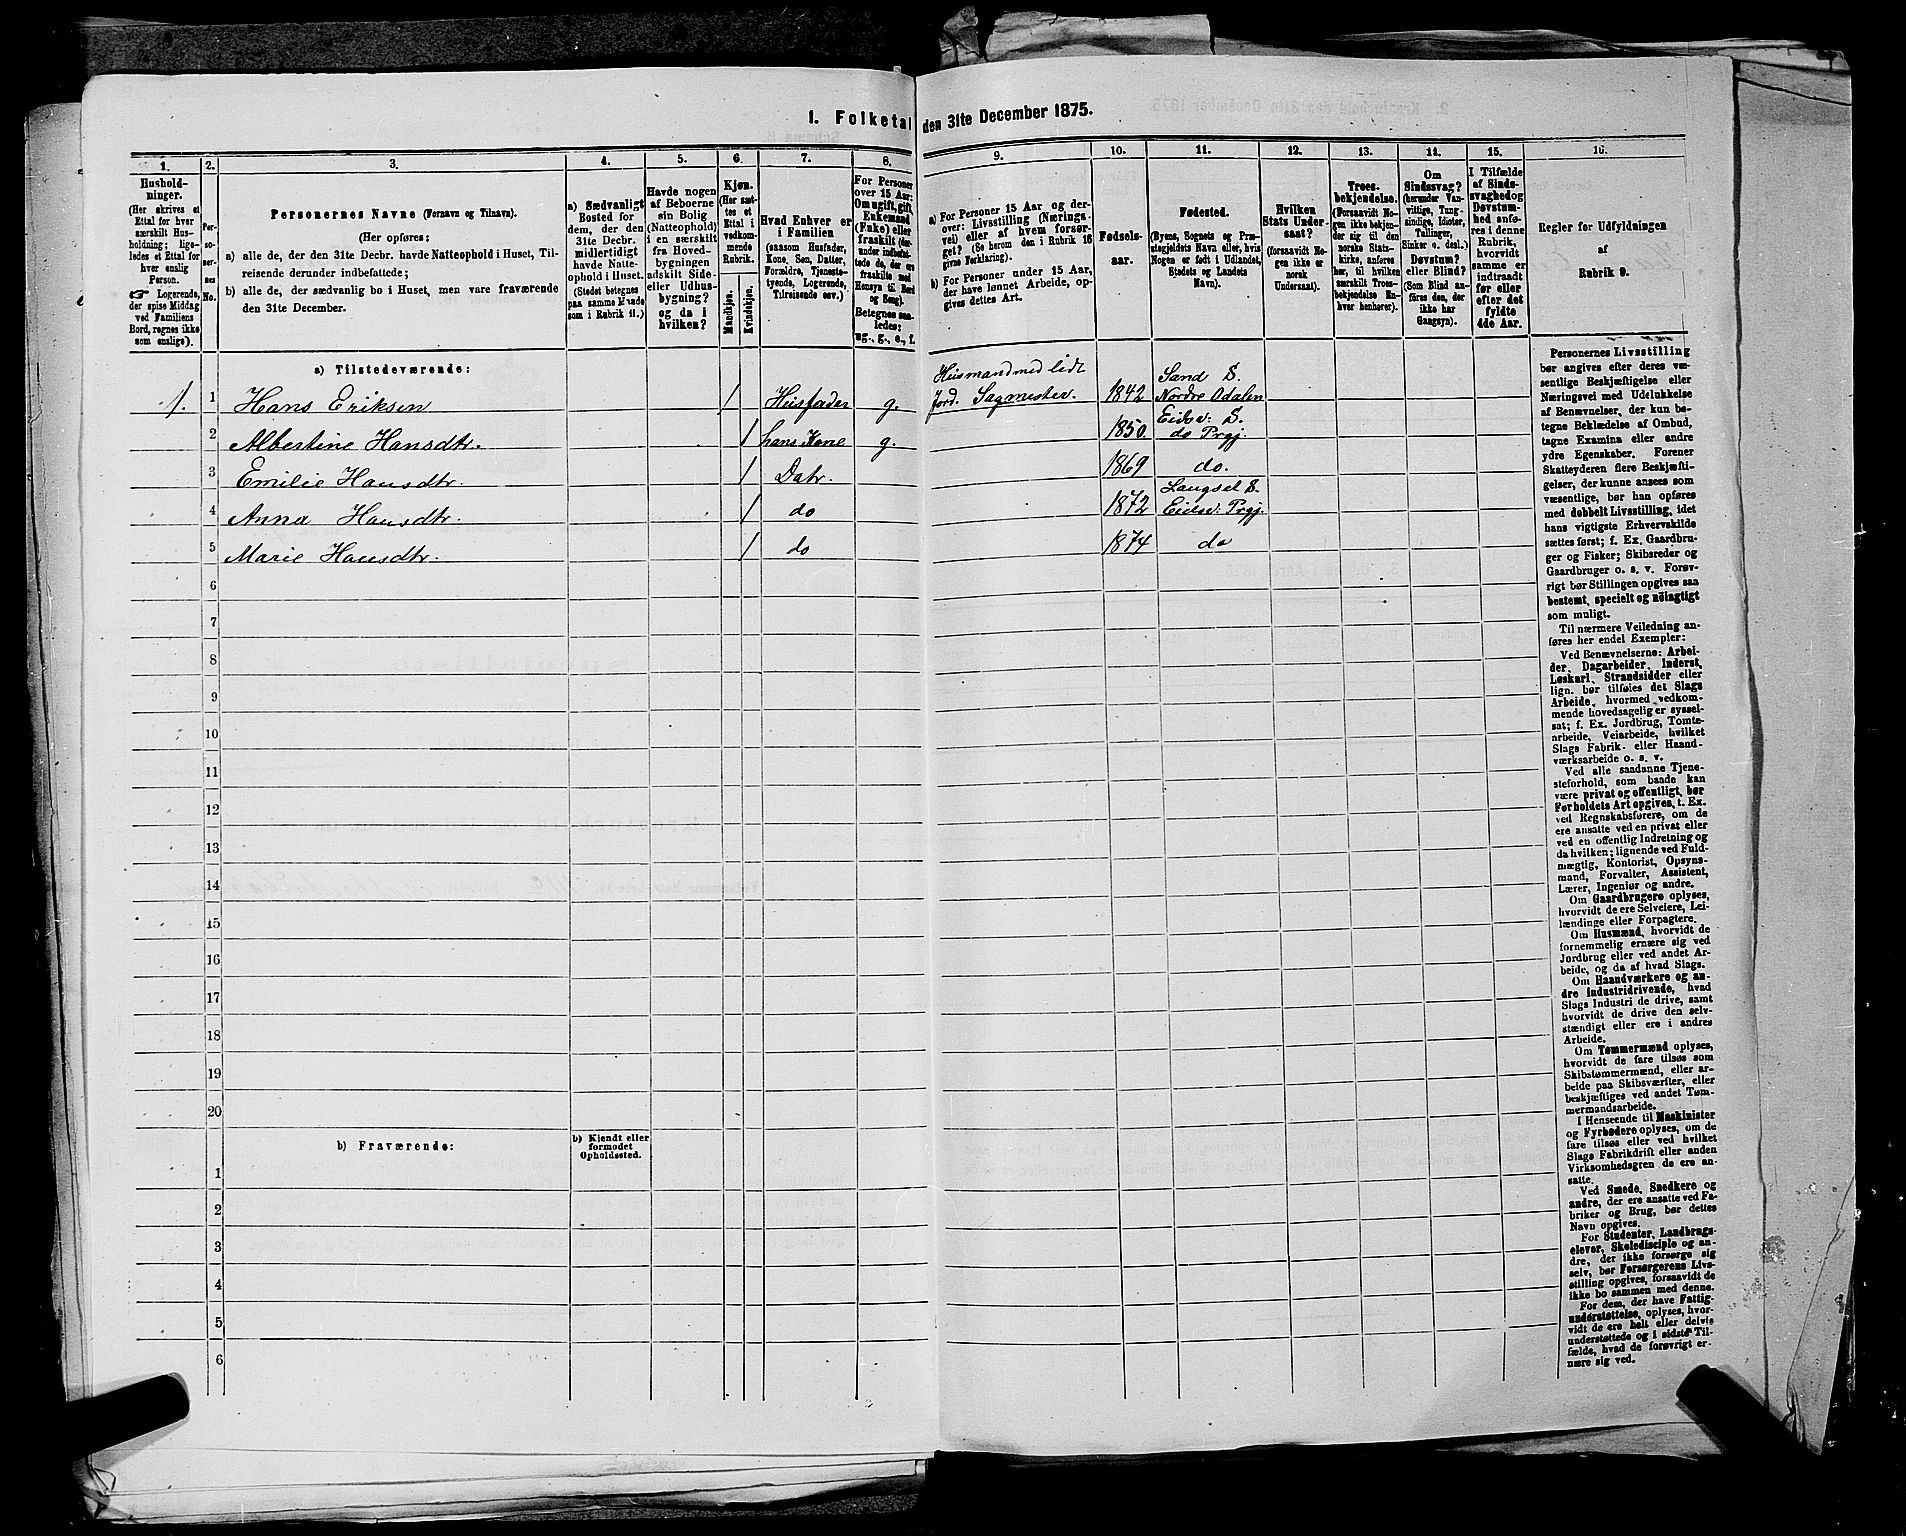 1. Folketal den 31te December 1875.
1.
2.
3.
4.
5.
6.
7.
8.
9.
10.
11.
12.
13.
14.
15.
16.
Hushold-
ninger.
(Her skrives et
Ettal for hver
særskilt Hus-
holdning; lige-
ledes et Ettal for
hver enslig
Person.
☞ Logerende,
der spise Middag
ved Familiens
Bord, regnes ikke
som enslige).
Per-
so-
ner-
nes
No.
Personernes Navne (Fornavn og Tilnavn).
(Her opføres:
a) alle de, der den 31te Decbr. havde Natteophold i Huset, Til-
reisende derunder indbefattede;
b) alle de, der sædvanlig bo i Huset, men vare fraværende
den 31te December.
a) Sædvanligt
Bosted for
dem, der den
31te Decbr.
midlertidigt
havde Natte-
ophold i Huset.
(Stedet betegnes
paa samme Maade
som i Rubrik 11.)
Havde nogen
af Beboerne
sin Bolig
(Natteophold)
i en særskilt
fra Hoved-
bygningen
adskilt Side-
eller Udhus-
bygning?
og da i
hvilken?
Kjøn.
(Her sæt-
tes et
Ettal i
vedkom-
mende
Rubrik.
Mandkjøn.
Kvindekjøn.
Hvad Enhver er
i Familien
(saasom Husfader,
Kone, Søn, Datter,
Forældre, Tjeneste-
tyende, Logerende,
Tilreisende osv.)
For Personer
over 15 Aar:
Om ugift, gift,
Enkemand
(Enke) eller
fraskilt (der-
under indbefat-
tede de, der ere
fraskilte med
Hensyn til Bord
og Seng).
Betegnes saa-
ledes:
ug., g., e., f.
a) For Personer 15 Aar og der-
over: Livsstilling (Nærings-
vei) eller af hvem forsør-
get? (Se herom den i Rubrik 16
givne Forklaring).
b) For Personer under 15 Aar,
der have lønnet Arbeide, op-
gives dettes Art.
Fødsels-
aar.
Fødested.
(Byens, Sognets og Præ-
stegjeldets Navn eller, hvis
Nogen er født i Udlandet,
Stedets og Landets
Navn).
Hvilken
Stats Under-
saat?
(forsaavidt No-
gen ikke er
norsk
Undersaat).
Troes-
bekjendelse.
(Forsaavidt No-
gen ikke bekjen-
der sig til den
norske Stats-
kirke, anføres
her, til hvilken
særskilt Troes-
bekjendelse En-
hver henhører).
Om
Sindssvag?
(herunder Van-
vittige, Tung-
sindige, Idioter,
Tullinger,
Sinker o. desl.)
Døvstum?
eller Blind?
(Som Blind an-
føres den, der
ikke har
Gangsyn).
I Tilfælde
af Sinds-
svaghed og
Døvstum-
hed anfø-
res i denne
Rubrik,
hvorvidt
samme er
indtraadt
før eller
efter det
fyldte
4de Aar.
Regler for Udfyldningen
af
Rubrik 9.
a) Tilstedeværende:
Husmand med lidt Sand S.
1. 1 Hans Eriksen 1 Husfader g. Jord. Sagmester. 1842 Nordre Odalen
Eidsv: S.
2 Albertine Hansdtr. 1 hans Kone g. 1850. do Prgj.
3 Emilie Hansdtr. 1 Datr. 1869 do.
Langset S.
4 Anna Hansdtr. 1 do 1872 Eidsv: Prgj.
5 Marie Hansdtr. 1 do 1874 do
6
7
8
9
10
11
12
13
14
15
16
17
18
19
20
b) Fraværende:
b) Kjendt eller
formodet
Opholdssted.
1
2
3
4
5
6
Personernes Livsstilling
bør angives efter deres væ-
sentlige Beskjæftigelse eller
Næringsvei med Udelukkelse
af Benævnelser, der kun be-
tegne Beklædelse af Ombud,
tagne Examina eller andre
ydre Egenskaber. Forener
Skatteyderen flere Beskjæfti-
gelser, der kunne ansees som
væsentlige, bør han opføres
med dobbelt Livsstilling, idet
hans vigtigste Erhvervskilde
sættes først; f. Ex. Gaardbru-
ger og Fisker; Skibsreder og
Gaardbruger o. s. v. Forøv-
rigt bør Stillingen opgives saa
bestemt, specielt og nøiagtigt
som muligt.
Til nærmere Veiledning an-
føres her endel Exempler:
Ved Benævnelserne: Arbei-
der, Dagarbeider, Inderst,
Løskarl, Strandsidder eller
lign. bør tilføies det Slags
Arbeide, hvormed vedkom-
mende hovedsagelig er syssel-
sat; f. Ex. Jordbrug, Tomte-
arbeide, Veiarbeide, hvilket
Slags Fabrik- eller Haand-
værksarbeide o. s. v.
Ved alle saadanne Tjene-
steforhold, som baade kan
være privat og offentligt, bør
Forholdets Art opgives, t. Ex.
ved Regnskabsførere, om de
ere ansatte ved en privat eller
ved en offentlig Indretning og
da hvilken; lignende ved Fuld-
mægtig, Kontorist, Opsyns-
mand, Forvalter, Assistent,
Lærer, Ingeniør og andre.
Om Gaardbrugere oplyses,
hvorvidt de ere Selveiere, Lei-
lændinge eller Forpagtere.
Om Husmænd, hvorvidt de
fornemmelig ernære sig ved
Jordbrug eller ved andet Ar-
beide, og da af hvad Slags.
Om Haandværkere og an-
dre Industridrivende, hvad
Slags Industri de drive, samt
hvorvidt de drive den selv-
stændigt eller ere i andres
Arbeide.
Om Tømmermænd oplyses,
hvorvidt de fare tilsøs som
Skibstømmermænd, eller ar-
beide paa Skibsværfter, eller
beskjæftiges ved andet Tøm-
mermandsarbeide.
I Henseende til Maskinister
og Fyrbødere oplyses, om de
fare tilsøs eller ved hvilket
Slags Fabrikdrift eller anden
Virksomhedsgren de ere an-
satte.
Ved Smede, Snedkere og
andre, der ere ansatte ved Fa-
briker og Brug, bør dettes
Navn opgives.
For Studenter, Landbrugs-
elever, Skoledisciple og an-
dre, der ikke forsørge sig
selv, bør Forsørgerens Livs-
stilling opgives, forsaavidt de
ikke bo sammen med denne.
For dem, der have Fattig-
understøttelse, oplyses, hvor-
vidt de ere helt eller delvis
understøttede og i sidste Til-
fælde, hvad de forøvrigt er-
nære sig ved.